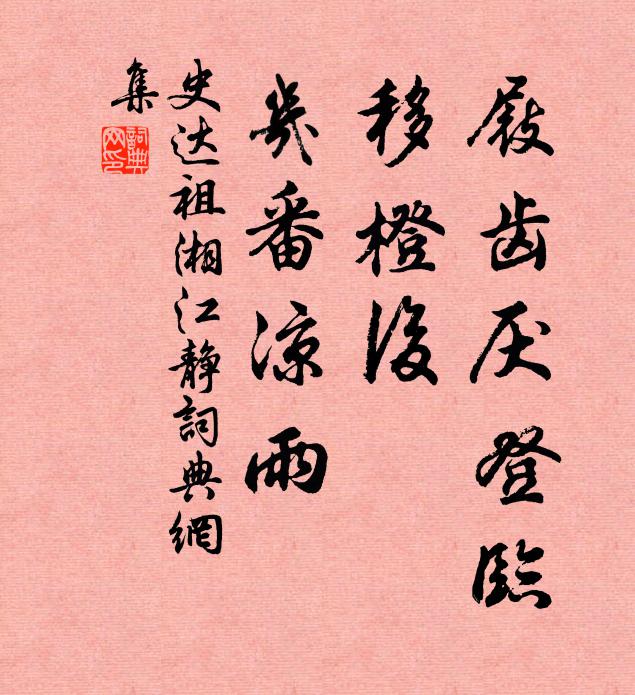 屐齿厌登临
移橙後
几番凉雨
史达祖湘江静詞典網
集
詞典
网印